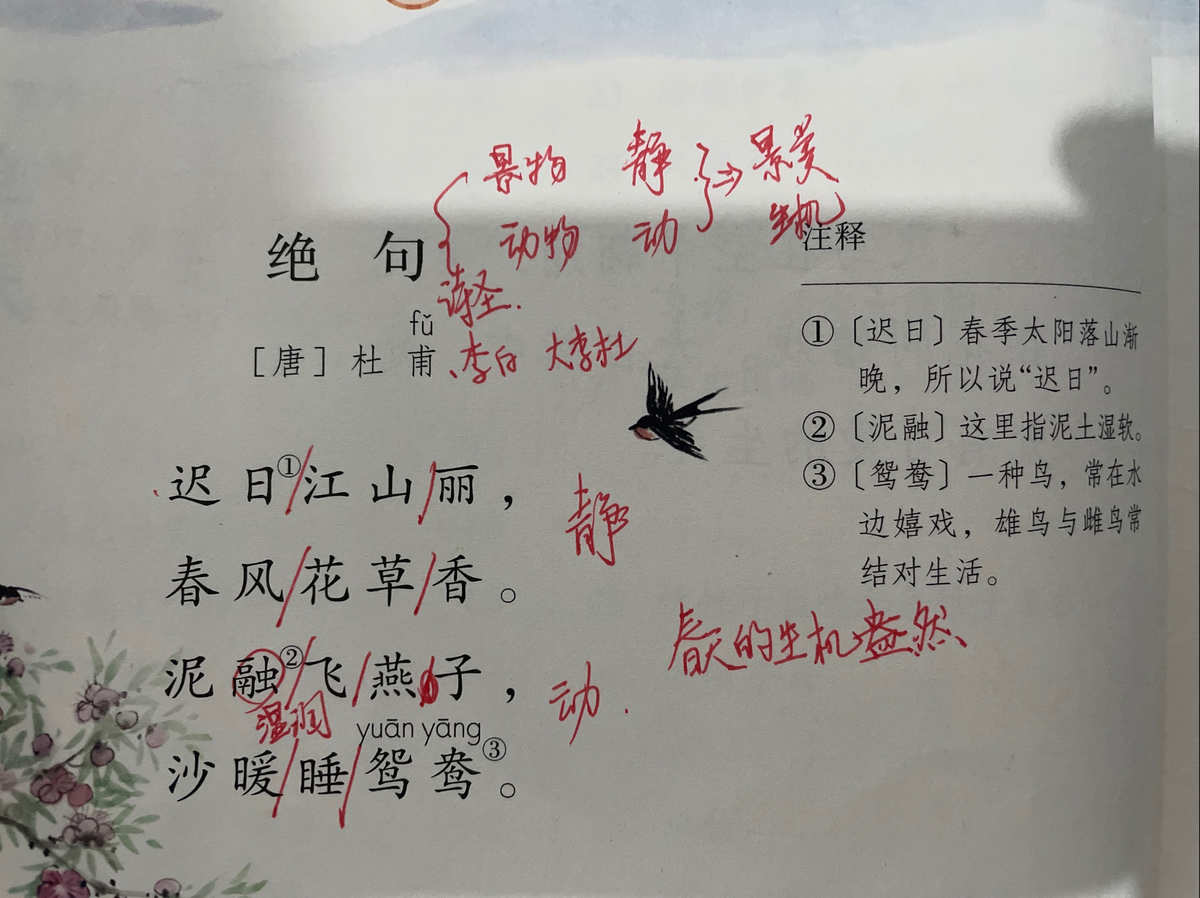 景物 静 } ⇒ 景美
动物 动 生机
绝句
诗圣.
fǔ
[唐]杜甫、李白 大李杜
迟日①/江山/丽，
静
春风/花草/香。
泥融②/飞/燕子，
动.
湿润
yuān yāng
沙暖/睡/鸳鸯③。
春天的生机盎然
注释
①〔迟日〕春季太阳落山渐
晚，所以说“迟日”。
②〔泥融〕这里指泥土湿软。
③〔鸳鸯〕一种鸟，常在水
边嬉戏，雄鸟与雌鸟常
结对生活。